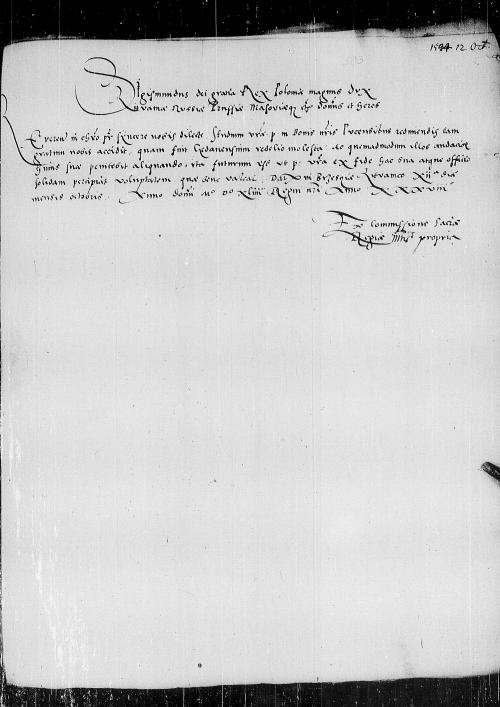 1544 12 Oct.
Sigismundus dei gratia Rex Polonie magnus Dux
Lituanie Russie Prussie Masovieq etc dominus et heres
Reveren in chro pr syncere nobis dilecte, Studium vra p in bonis nris Precensibus redimendis tam
gratum nobis accidit, quam fuit Gedanensium rebelio molesta. Ac quemadmodum illos audacie
suæ penitebit aliquando, ita futurum esse ut p. vra ex fide hac sua atque officio
solidam percipiat voluptatem quæ bene valeat. Dat in Brzesczie Lituanico XII a die
mensis octobris. Anno domi Mo Do XLIIII Regni nri Anno XXXVIII
Ex commissione Sacræ
Regiæ Mtis propria